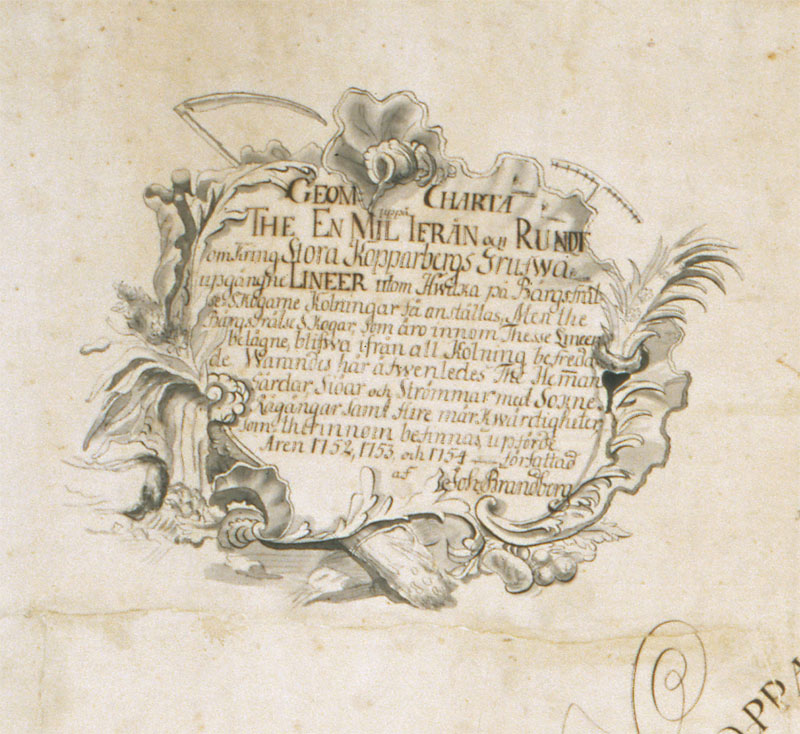 GEOM: CHARTA
uppå
THE EN MIL IFRÅN och RUNDT
omkring Stora Kopparbergs Grufwa
upgångne LINEER utom Hwilka på Bärgsfräl-
se Skogarne Kolningar få anställas, Men the
Bärgsfrälse Skogar, som äro innom Thesse Lineer
belägne, blifwa ifrån all Kolning befreda-
de Warandes här äfwenledes The Heman
Gårdar Siöar och Strömmar med Sokne
Rågångar samt flire märkwärdigheter
som therinnom befinnas, upförde
Åren 1752, 1753, och 1754 författad
af Joh: Brandberg
OPPA